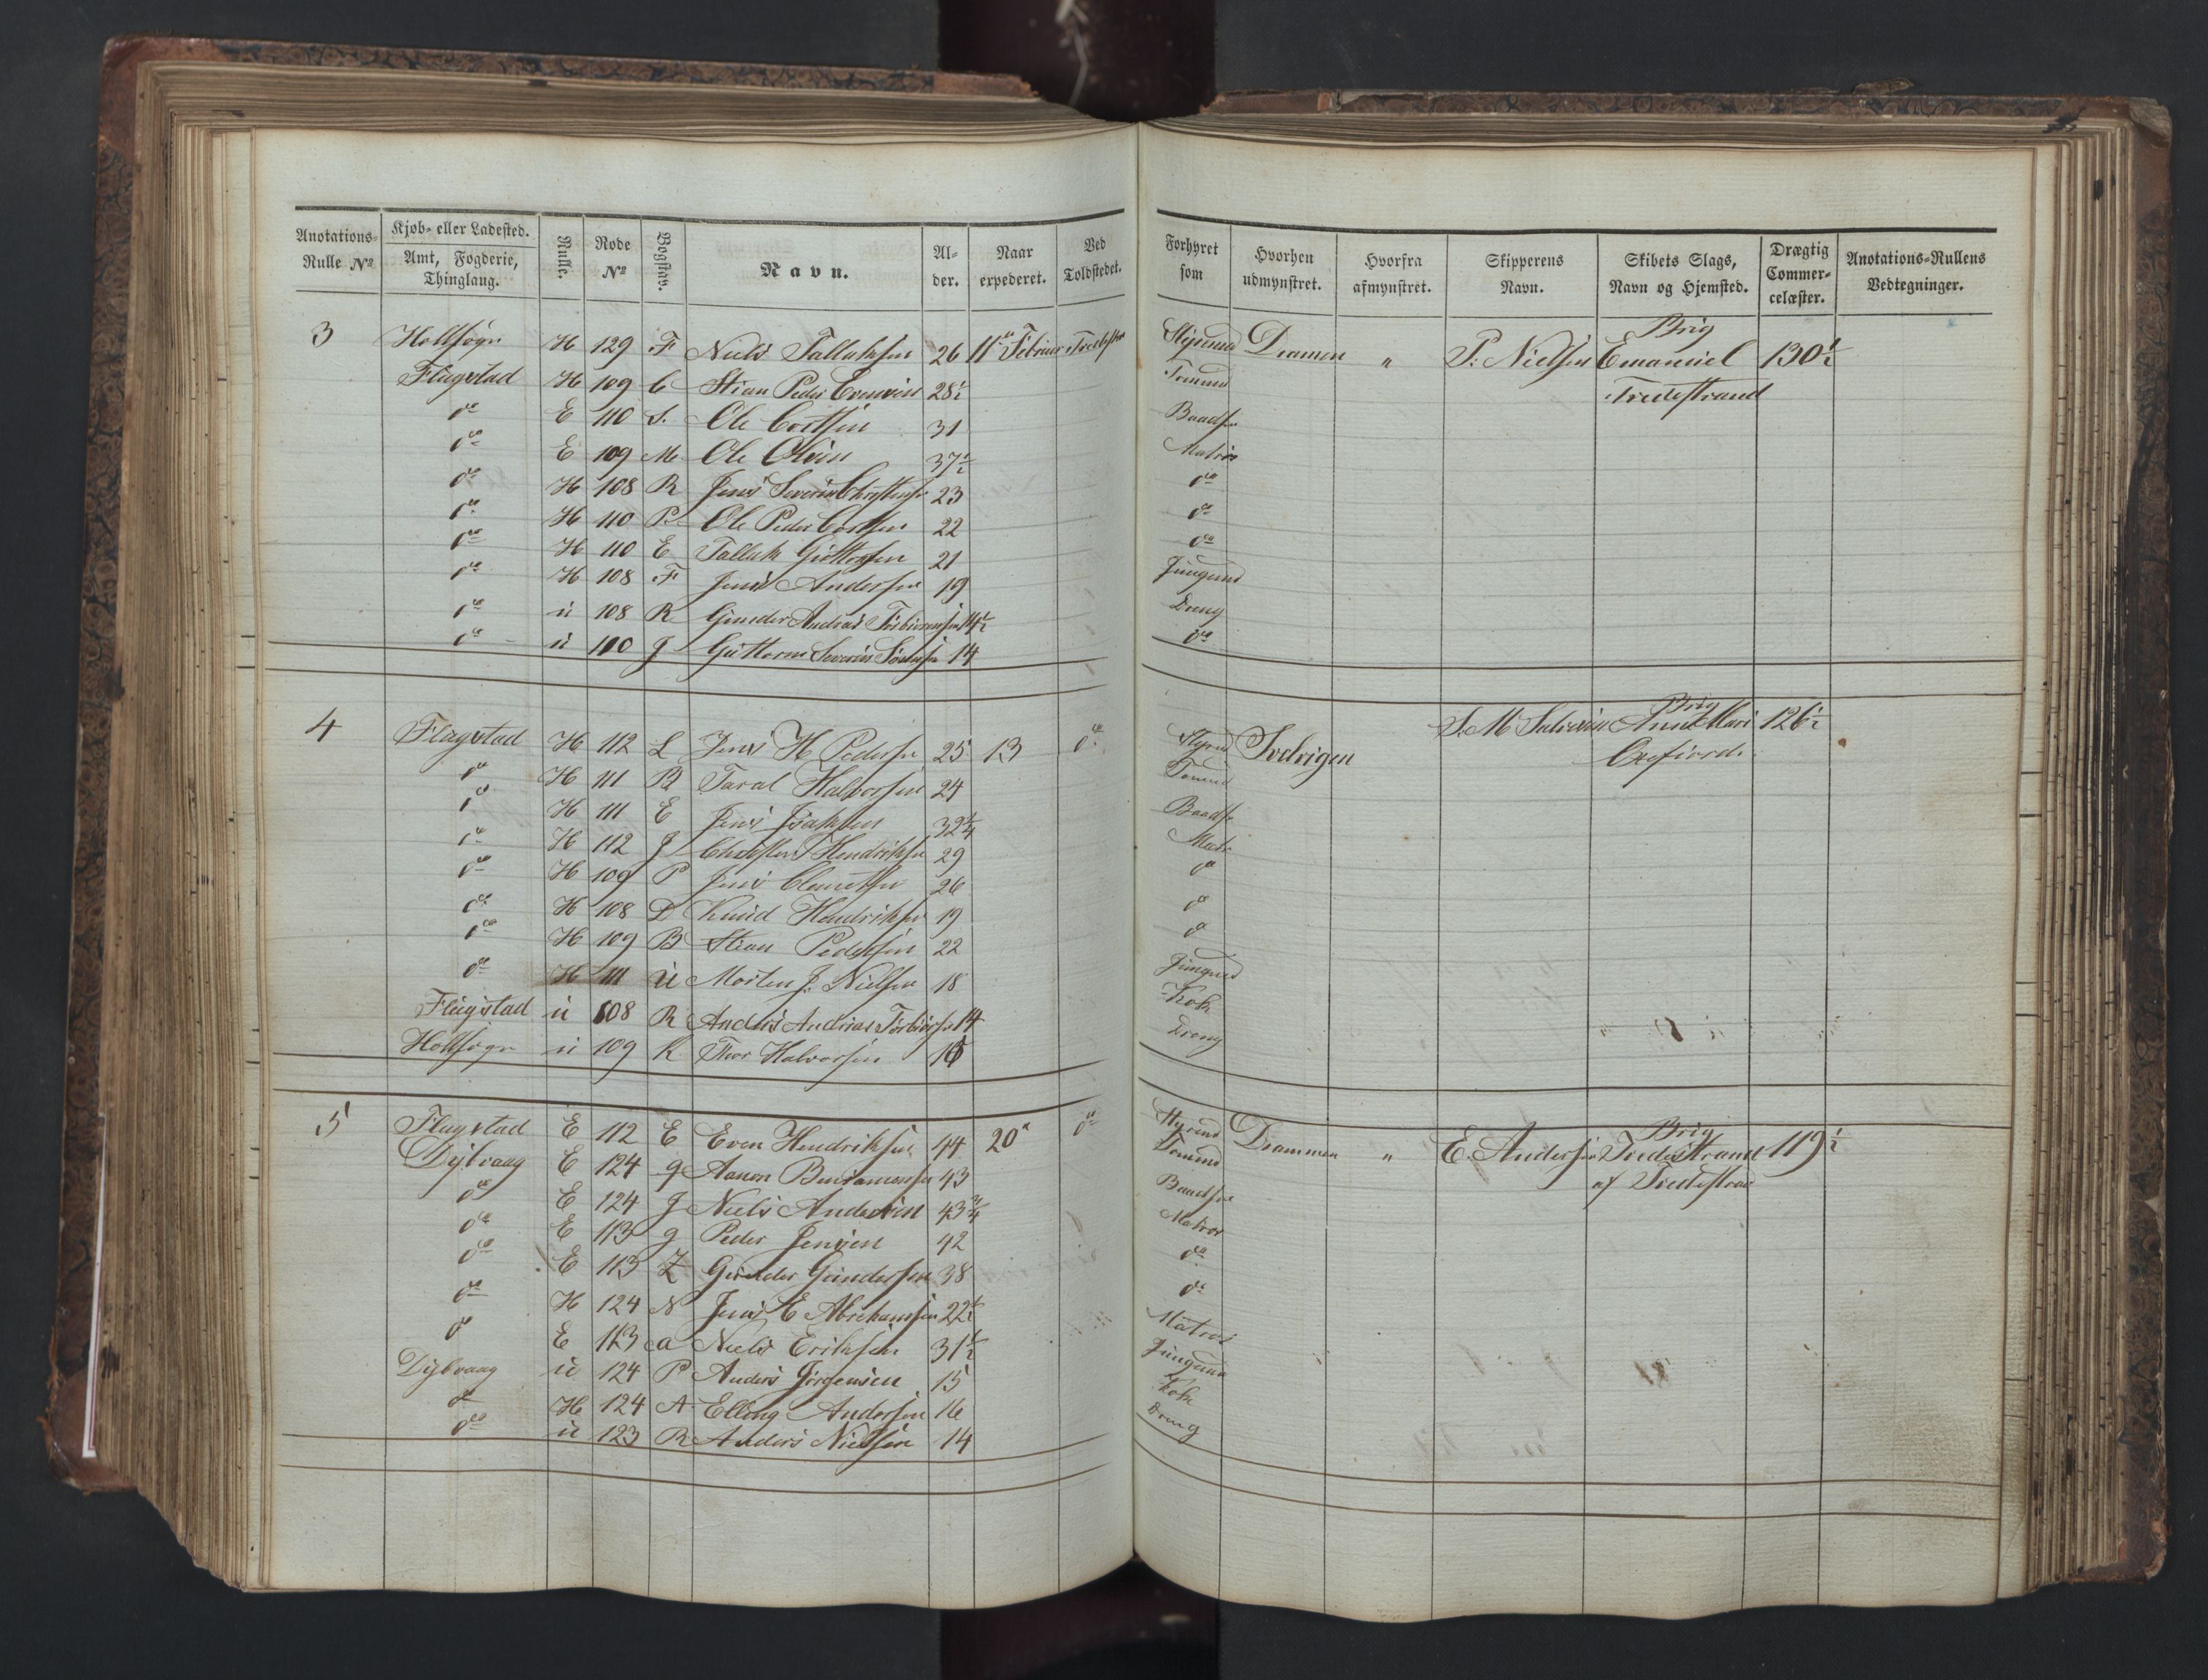 Anotations-Rulle No
Kjøb- eller Ladested.
Amt, Fogderie, Thinglaug.
Rulle.
Rode No
Bogstav.
Navn.
Alder.
Naar expederet.
Ved Toldstedet.
Forhyret som
Hvorhen udmynstret.
Hvorfra afmynstret.
Skipperens Navn.
Skibets Slags, Navn og Hjemsted.
Drægtig Commercelæster.
Anotations-Rullens Vedtegninger.
3 Holtsogn H 129 F Niels Tallaksen 26 11te Styrmd Dramen " P. Nielsen Brig Emanuel 130½
Flagstad H 109 C Stian Peder 28½ Tømmd Tvedestrand
do E 110 S. Ole 31 Baadsm
do E 109 M Ole Olsen 37½ Matros
do H 108 R Jens Severin Christens 23 do
do H 110 P Ole Peder 22 do
do H 110 E Tallak Guttormsen 21 do
do H 108 F Jens Andersen 19 Jungmd
do u 108 R Gunder Andreas 14½ Dreng
do u 110 J Guttorm Severin 14 do
4 Flagstad H 112 L Jens H Pedersen 25 13 do Styrmd Svelvigen S. M. Brig Anne Mari 126½
do H 111 B Taral Halvorsen 24 Tømmd Oxefiord.
do H 111 E Jens Isaksen 32¼ Baadsm
do H 112 J Hendriksen 29 Matr
do H 109 P Jens 26 do
do H 108 D Knud Hendriksen 19 do
do H 109 B Stian Pedersen 22 do
do H 111 U Morten J. Nielsen 18 Jungmd
Flagstad u 108 R Anders Andreas 14 Kok
Holtsogn u 109 K Thor Halvorsen Dreng
5 Flagstad E 112 E Even Hendriksen 44 20 do Styrmd Drammen " E. Andersen Brig Tvedestrand 119½
Dybvaag E 124 g Aanon 43 Tømmd af Tvedestrand
do E 124 J Niels Andersen 43¾ Baadsm
do E 113 g Peder Jensen 42 Matros
do E 113 Z Gunder Gundersen 38 do
do H 124 N Jens E Abrahamsen 22½ do
do E 113 a Niels Eriksen 31½ Matros
Dybvaag u 124 P Anders Jörgensen 15 Jungmd
do H 124 A Elling Andersen 16 Kok
do u 123 R Anders Nielsen 14 Dreng